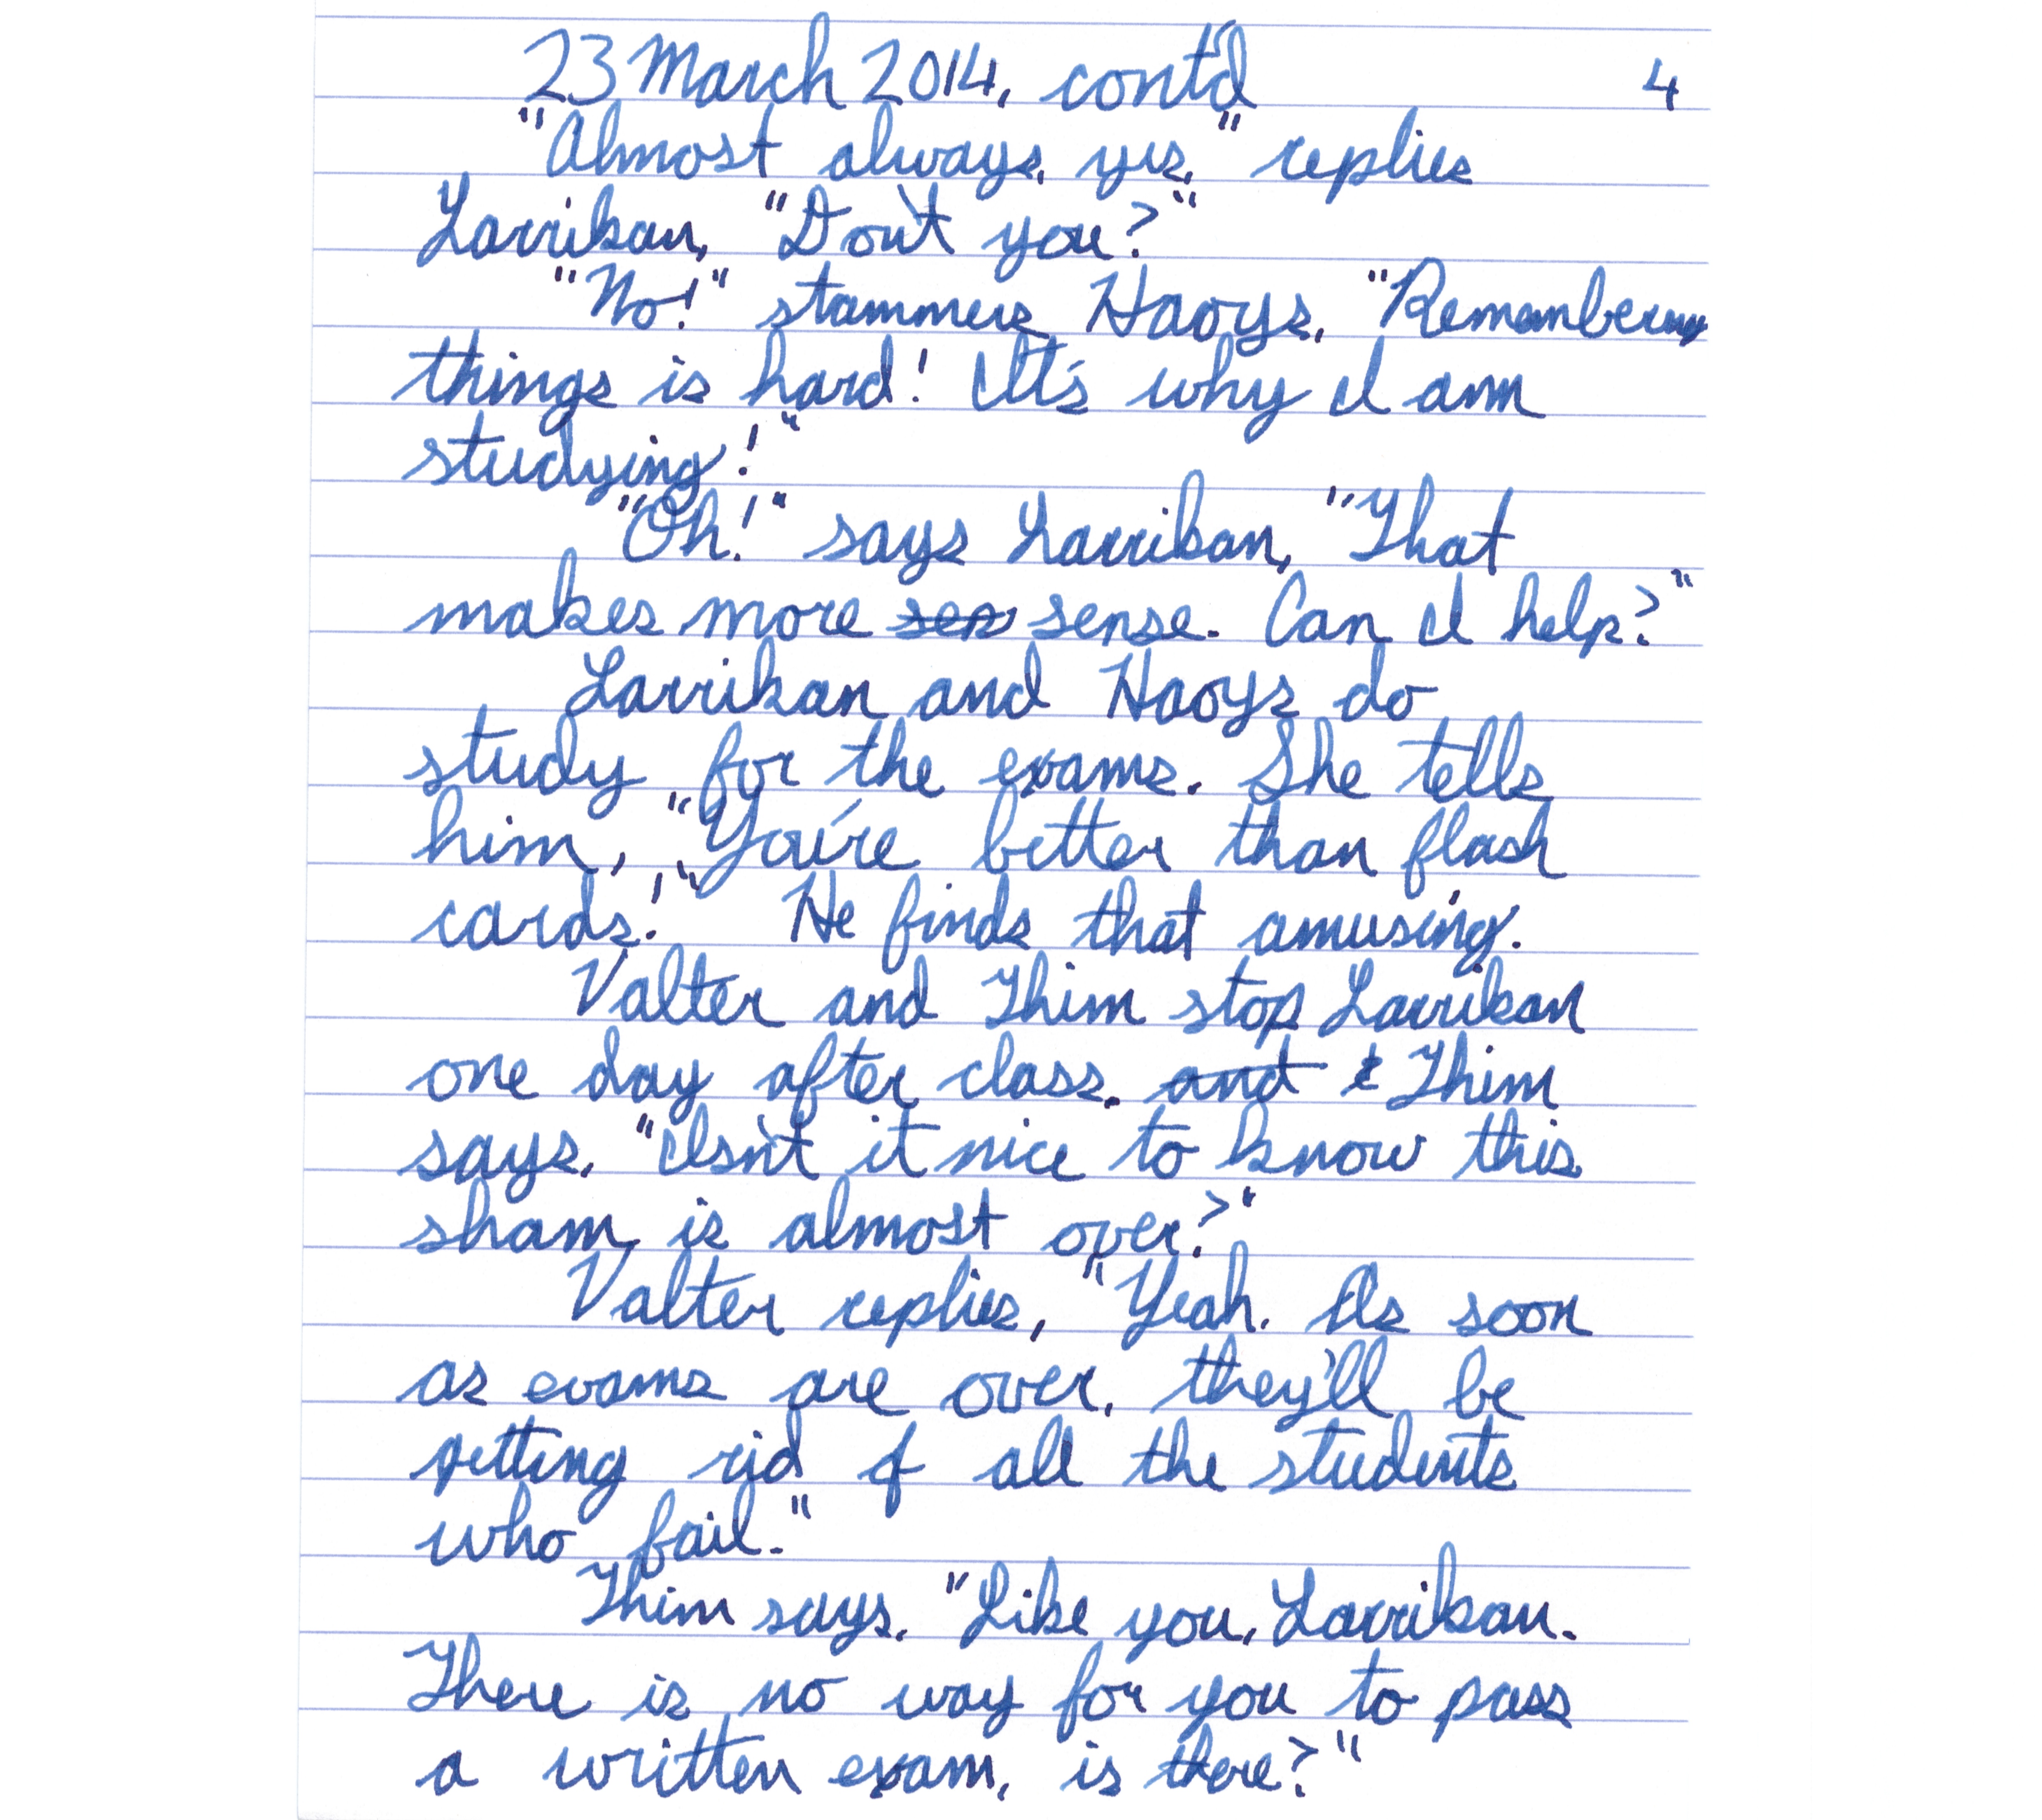 23 March 2014, cont'd 4
"Almost always, yes," replies
Larrikan, "Don't you?"
"No!" stammers Haoys. "Remembering
things is hard! It's why I am
studying!"
"Oh!" says Larrikan, "That
makes more sen sense. Can I help?"
Larrikan and Haoys do
study for the exams. She tells
him, "You're better than flash
cards!" He finds that amusing.
Valter and Thim stop Larrikan
one day after class, and & Thim
says, "Isn't it nice to know this
sham is almost over?"
Valter replies, "Yeah. As soon
as exams are over, they'll be
getting rid of all the students
who fail."
Thim says, "Like you, Larrikan.
There is no way for you to pass
a written exam, is there?"